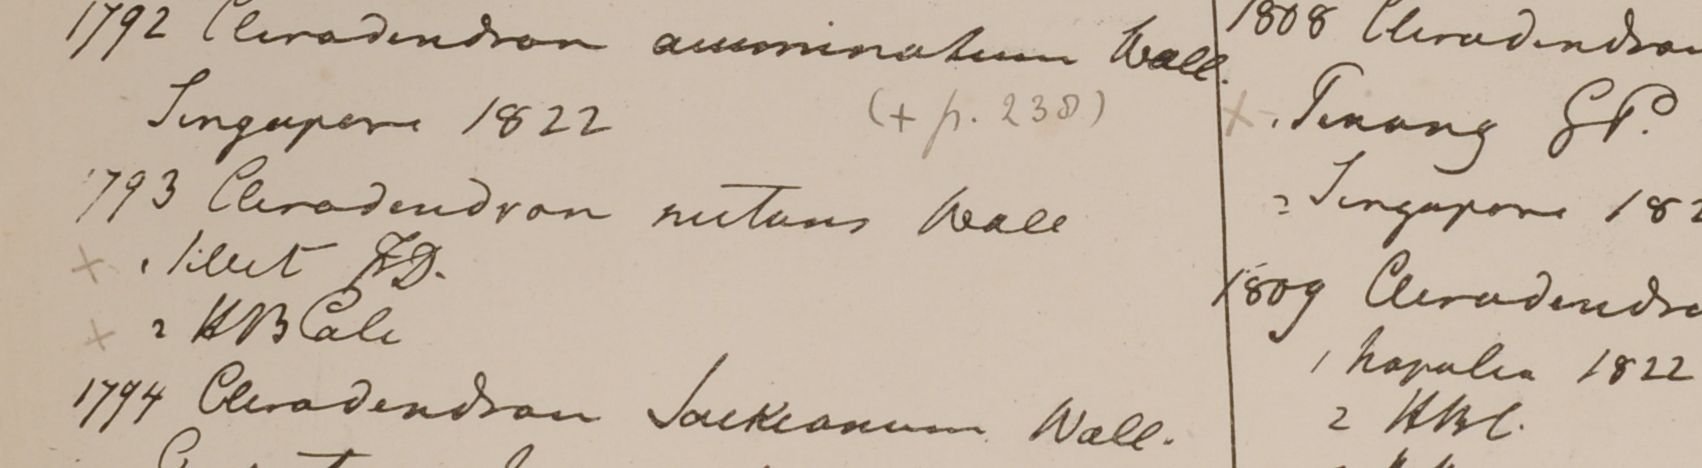 1792 Clerodendron acuminatum Wall.
Singapore 1822 (+ p. 238)
1793 Clerodendron nutans Wall
× 1 Silhet FD.
× 2 HB Calc
1794 Clerodendron Jackianum Wall.
1808 Clerodendron
×1 Penang GP.
2 Singapore 182
1809 Clerodendro
1 Napalia 1822
2 HBC.